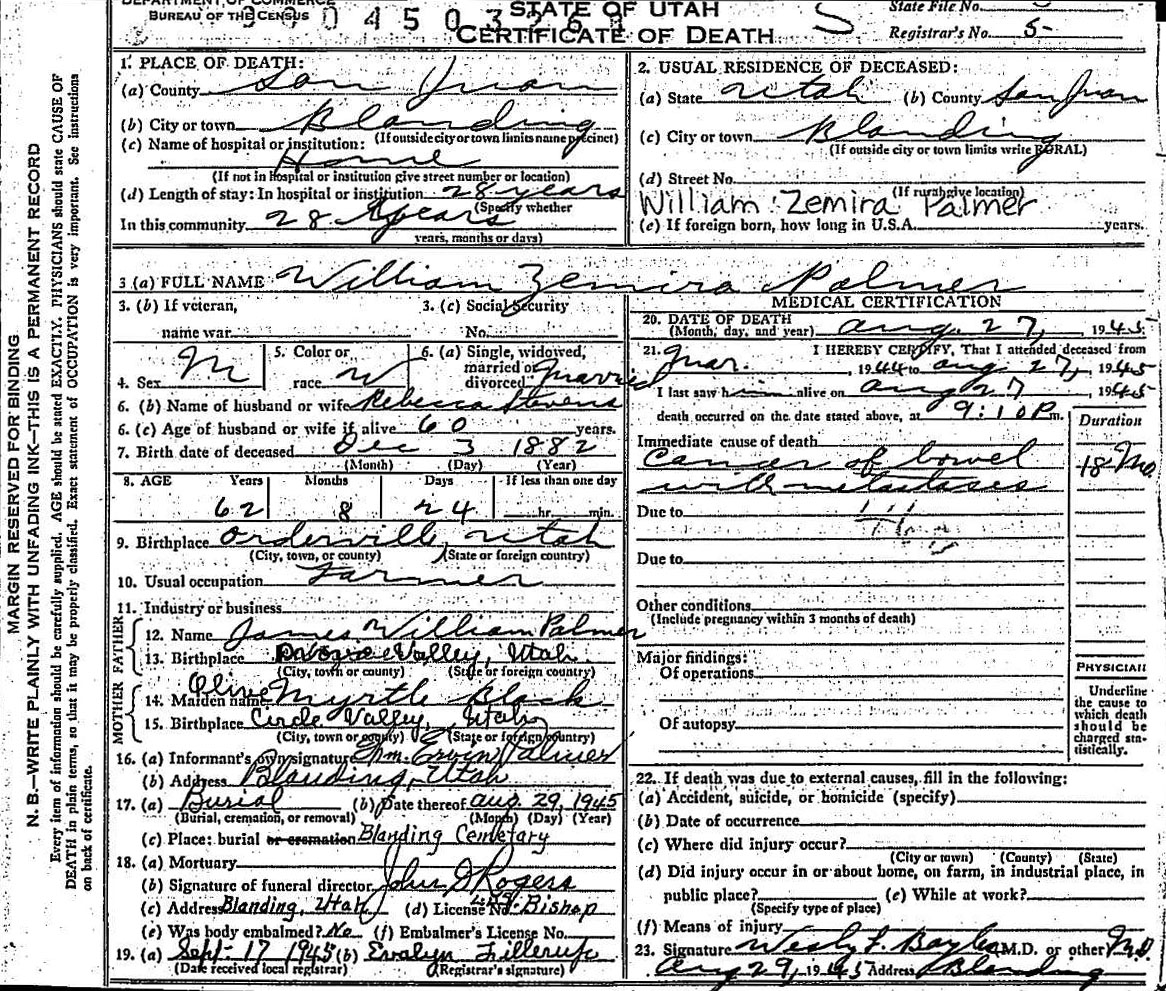 DEPARTMENT OF COMMERCE
BUREAU OF THE CENSUS
STATE OF UTAH
CERTIFICATE OF DEATH
State File No.
Registrar's No. 5-
MARGIN RESERVED FOR BINDING
N. B.—WRITE PLAINLY WITH UNFADING INK—THIS IS A PERMANENT RECORD
Every item of information should be carefully supplied. AGE should be stated EXACTLY. PHYSICIANS should state CAUSE OF
DEATH in plain terms, so that it may be properly classified. Exact statement of OCCUPATION is very important. See instructions
on back of certificate.
1. PLACE OF DEATH:
(a) County San Juan
(b) City or town Blanding
(If outside city or town limits name precinct)
(c) Name of hospital or institution:
Home
(If not in hospital or institution give street number or location)
(d) Length of stay: In hospital or institution 28 years
(Specify whether
In this community 28 years
years, months or days)
2. USUAL RESIDENCE OF DECEASED:
(a) State Utah (b) County San Juan
(c) City or town Blanding
(If outside city or town limits write RURAL)
(d) Street No.
(If rural give location)
William Zemira Palmer
(e) If foreign born, how long in U.S.A. years.
3 (a) FULL NAME William Zemira Palmer
3. (b) If veteran, 3. (c) Social Security
name war No.
4. Sex M 5. Color or race W 6. (a) Single, widowed, married or divorced Married
6. (b) Name of husband or wife Rebecca Stevens
6. (c) Age of husband or wife if alive 60 years.
7. Birth date of deceased Dec 3 1882
(Month) (Day) (Year)
8. AGE Years Months Days If less than one day
62 8 24 hr. min.
9. Birthplace Orderville, Utah
(City, town, or county) (State or foreign country)
10. Usual occupation Farmer
11. Industry or business
FATHER
12. Name James William Palmer
13. Birthplace Valley, Utah
(City, town or county) (State or foreign country)
MOTHER
14. Maiden name Olive Myrtle Black
15. Birthplace Circle Valley, Utah
(City, town or county) (State or foreign country)
16. (a) Informant's own signature Wm. Ervin Palmer
(b) Address Blanding, Utah
17. (a) Burial (b) Date thereof Aug. 29, 1945
(Burial, cremation, or removal) (Month) (Day) (Year)
(c) Place: burial or cremation Blanding Cemetary
18. (a) Mortuary
(b) Signature of funeral director John D Rogers
(c) Address Blanding, Utah (d) License No. Bishop
(e) Was body embalmed? No (f) Embalmer's License No.
19. (a) Sept. 17 1945 (b) Evalyn Fillerup
(Date received local registrar) (Registrar's signature)
MEDICAL CERTIFICATION
20. DATE OF DEATH
(Month, day, and year) Aug. 27, 1945
21. I HEREBY CERTIFY, That I attended deceased from
Mar. , 1944 to Aug. 27, 1945
I last saw him alive on Aug 27 1945
death occurred on the date stated above, at 9:10 P m.
Duration
Immediate cause of death
Cancer of bowel 18 Mo.
with metastases
Due to
Due to
Other conditions
(Include pregnancy within 3 months of death)
Major findings:
Of operations
Of autopsy
PHYSICIAN
Underline
the cause to
which death
should be
charged sta-
tistically.
22. If death was due to external causes, fill in the following:
(a) Accident, suicide, or homicide (specify)
(b) Date of occurrence
(c) Where did injury occur?
(City or town) (County) (State)
(d) Did injury occur in or about home, on farm, in industrial place, in
public place? (e) While at work?
(Specify type of place)
(f) Means of injury
23. Signature M.D. or other M.D.
Aug 29, 1945 Address Blanding